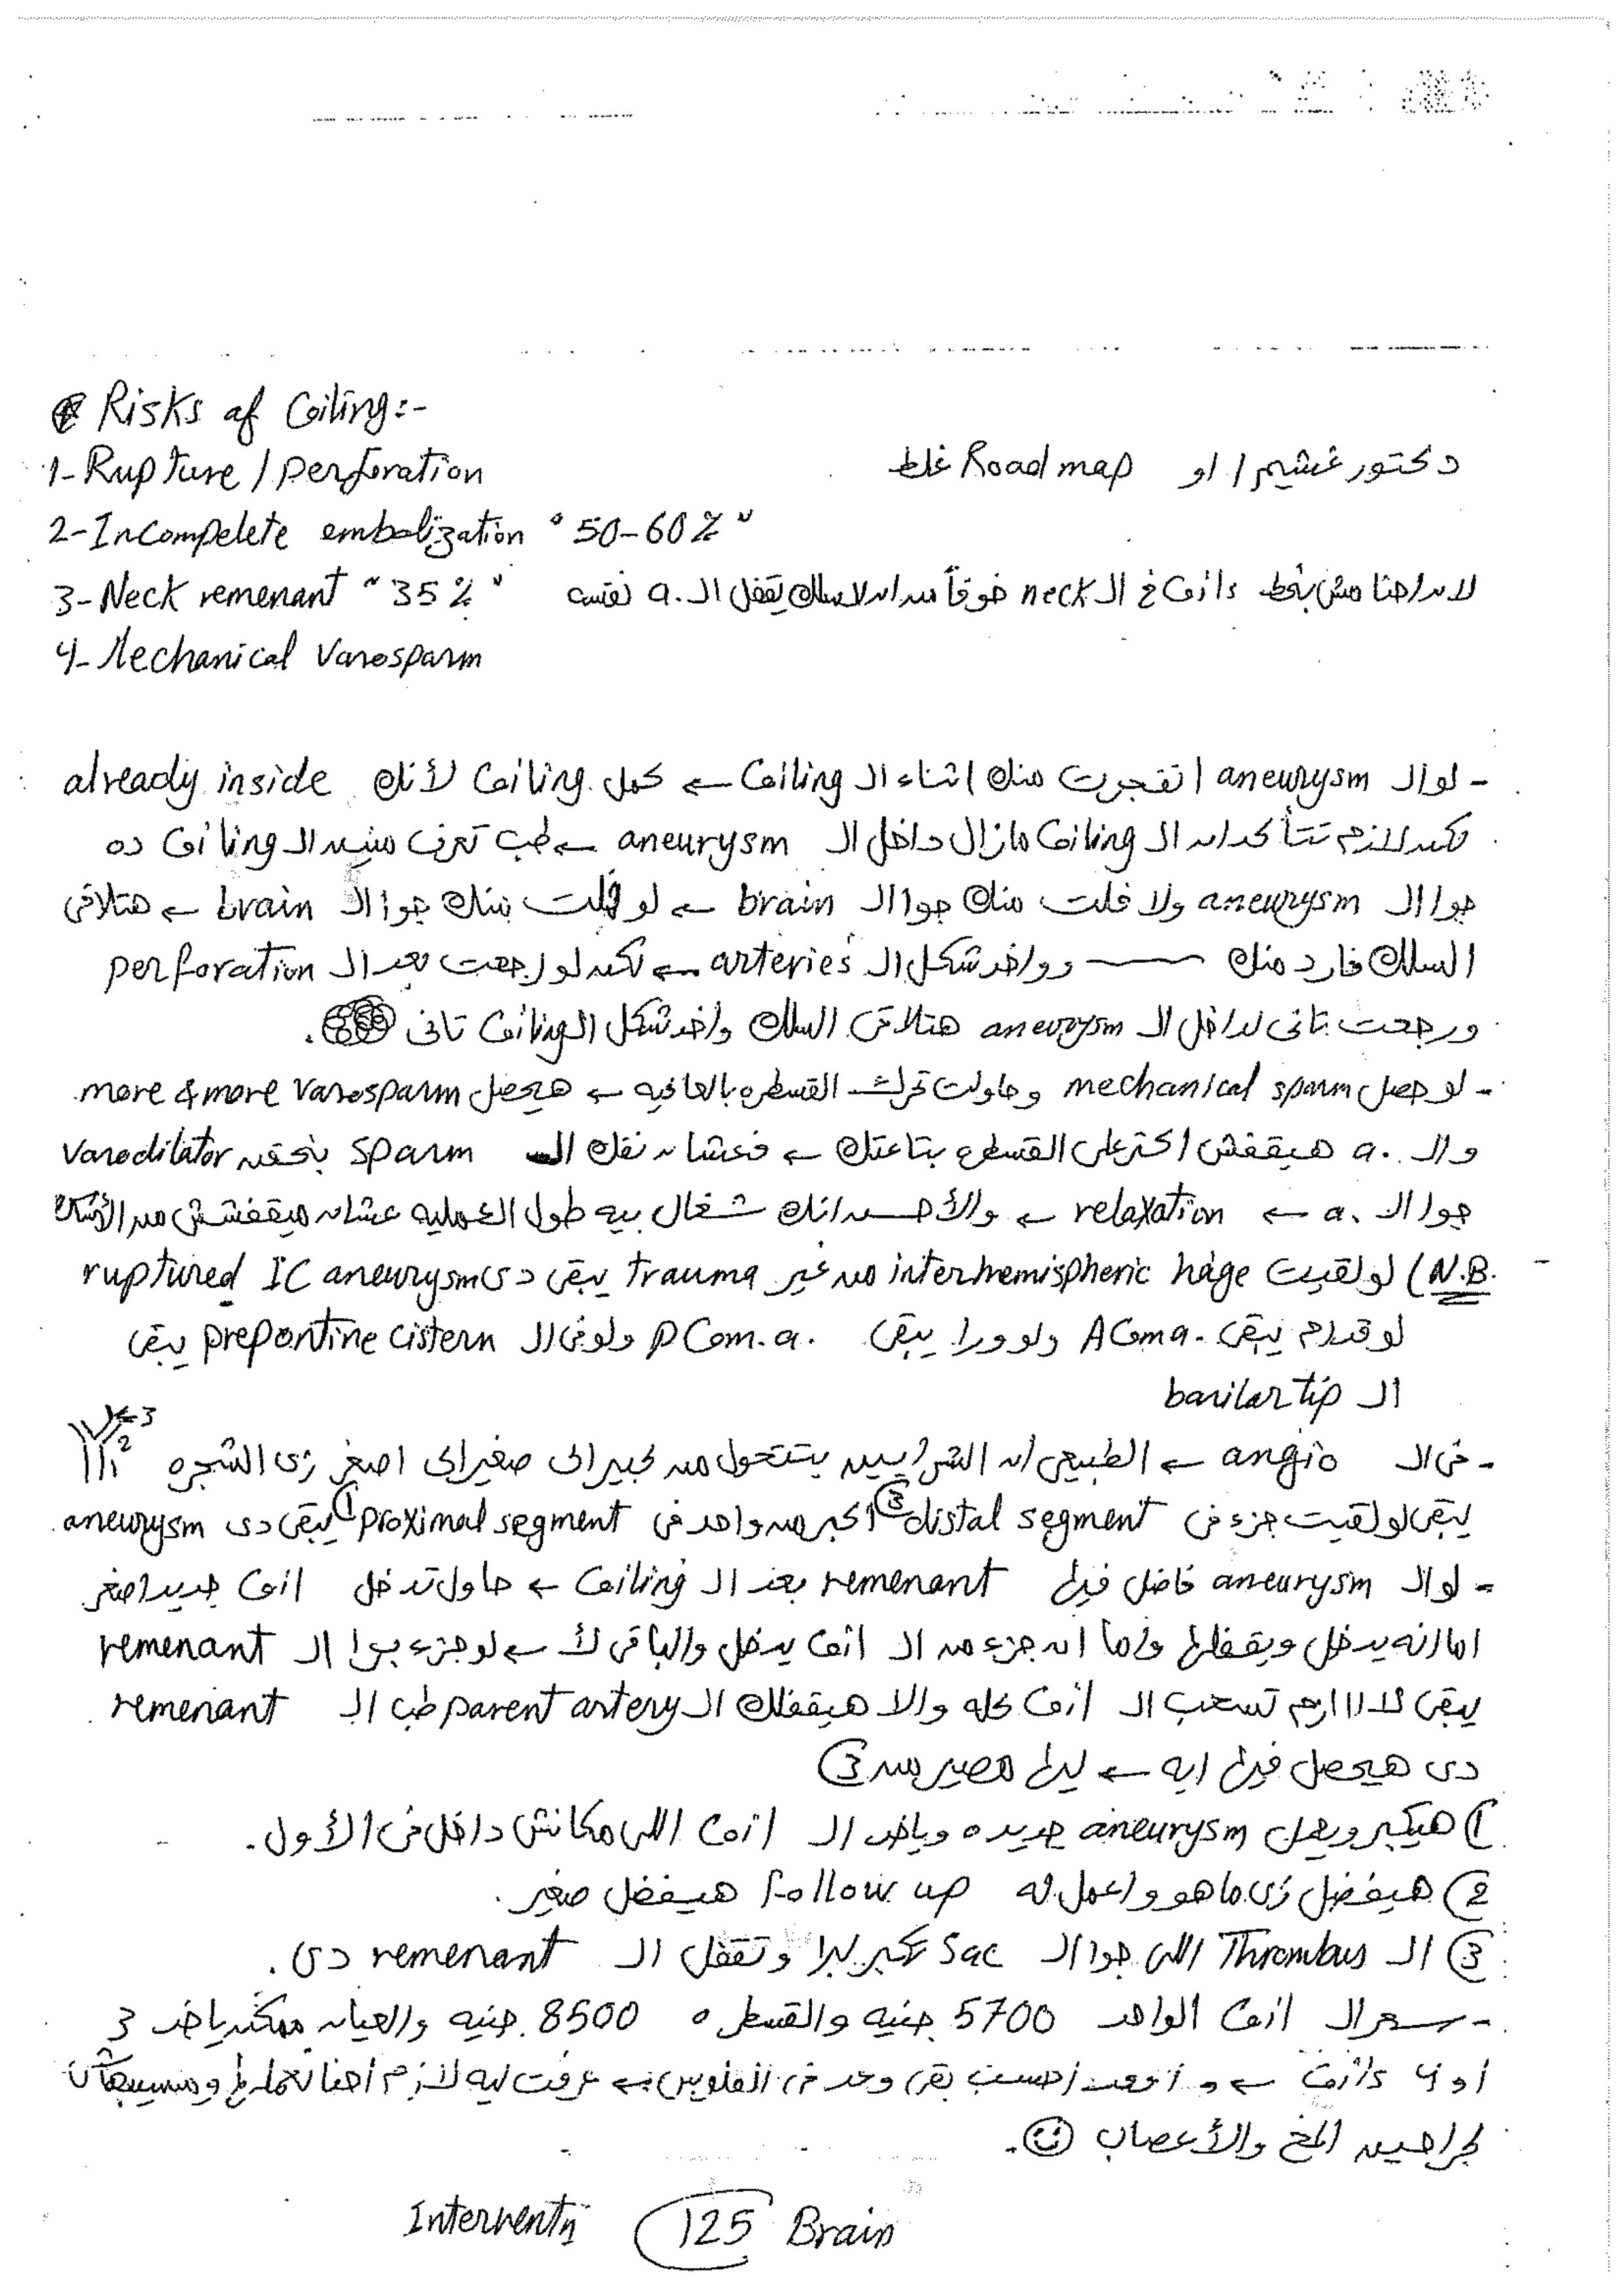 Risks of Coiling:-
1- Rupture / perforation دكتور غشيم / او Road map غلط
2- Incompelete embolization "50-60%"
3- Neck remenant "35%" لان احنا مش بنحط coils في ال neck خوفاً من ان السلك يقفل ال a. نفسه
4- Mechanical Vasospasm
- لو ال aneurysm اتفجرت منك اثناء ال Coiling ← كمل Coiling لأنك already inside
لكن لازم تتأكد ان ال Coiling مازال داخل ال aneurysm ← طب تعرف منين ال Coiling ده
جوا ال aneurysm ولا فلت منك جوا ال brain ← لو فلت منك جوا ال brain ← هتلاقى
السلك فارد منك وواخد شكل ال arteries ← لكن لو رجعت بعد ال perforation
ورجعت تانى لداخل ال aneurysm هتلاقى السلك واخد شكل ال Coiling تانى .
- لو حصل mechanical spasm وحاولت تحرك القسطره بالعافيه ← هيحصل more & more vasospasm
وال a. هيقفش اكتر على القسطره بتاعتك ← فعشان نفك ال spasm بنحقن vasodilator
جوا ال a. ← relaxation ← والأحسن انك شغال بيه طول العمليه عشان ميقفشش من
N.B.) لو لقيت interhemispheric hage من غير trauma يبقى دى ruptured IC aneurysm
لو قدام يبقى ACom a. ولو ورا يبقى PCom. a. ولو فى ال prepontine cistern يبقى
ال basilar tip
- فى ال angio ← الطبيعى ان الشرايين بتتحول من كبير الى صغير الى اصغر زى الشجره 1 2 3
يبقى لو لقيت جزء فى distal segment ③ اكبر من واحد فى proximal segment ① يبقى دى aneurysm
- لو ال aneurysm فاضل فيها remenant بعد ال Coiling ← حاول تدخل coil جديد اصغر
اما انه يدخل ويقفلها واما ان جزء من ال coil يدخل والباقى لأ ← لو جزء برا ال remenant
يبقى لااازم تسحب ال coil كله والا هيقفلك ال parent artery طب ال remenant
دى هيحصل فيها ايه ← ليها مصير من 3
① هيكبر ويعمل aneurysm جديده وياخد ال coil اللى مكانش داخل فى الأول.
② هيفضل زى ما هو واعمل له Follow up هيفضل صغير.
③ ال Thrombus اللى جوا ال Sac تكبر لبرا وتقفل ال remenant دى.
- سعر ال coil الواحد 5700 جنيه والقسطره 8500 جنيه والعيان ممكن ياخد 3
او 4 coils ← و احسب بقى وعد فى الفلوس ← عرفت ليه لازم احنا نعملها ومنسيبهاش
لجراحين المخ والأعصاب .
Interventn 125 Brain